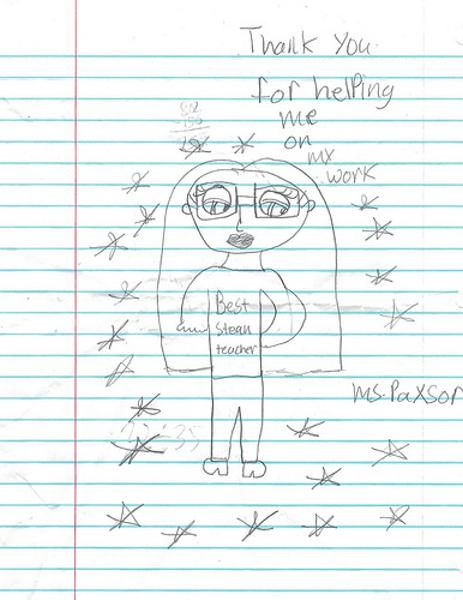 Thank you
for helping
me
on
my
work
Best
Stean
teacher
Ms. Paxson